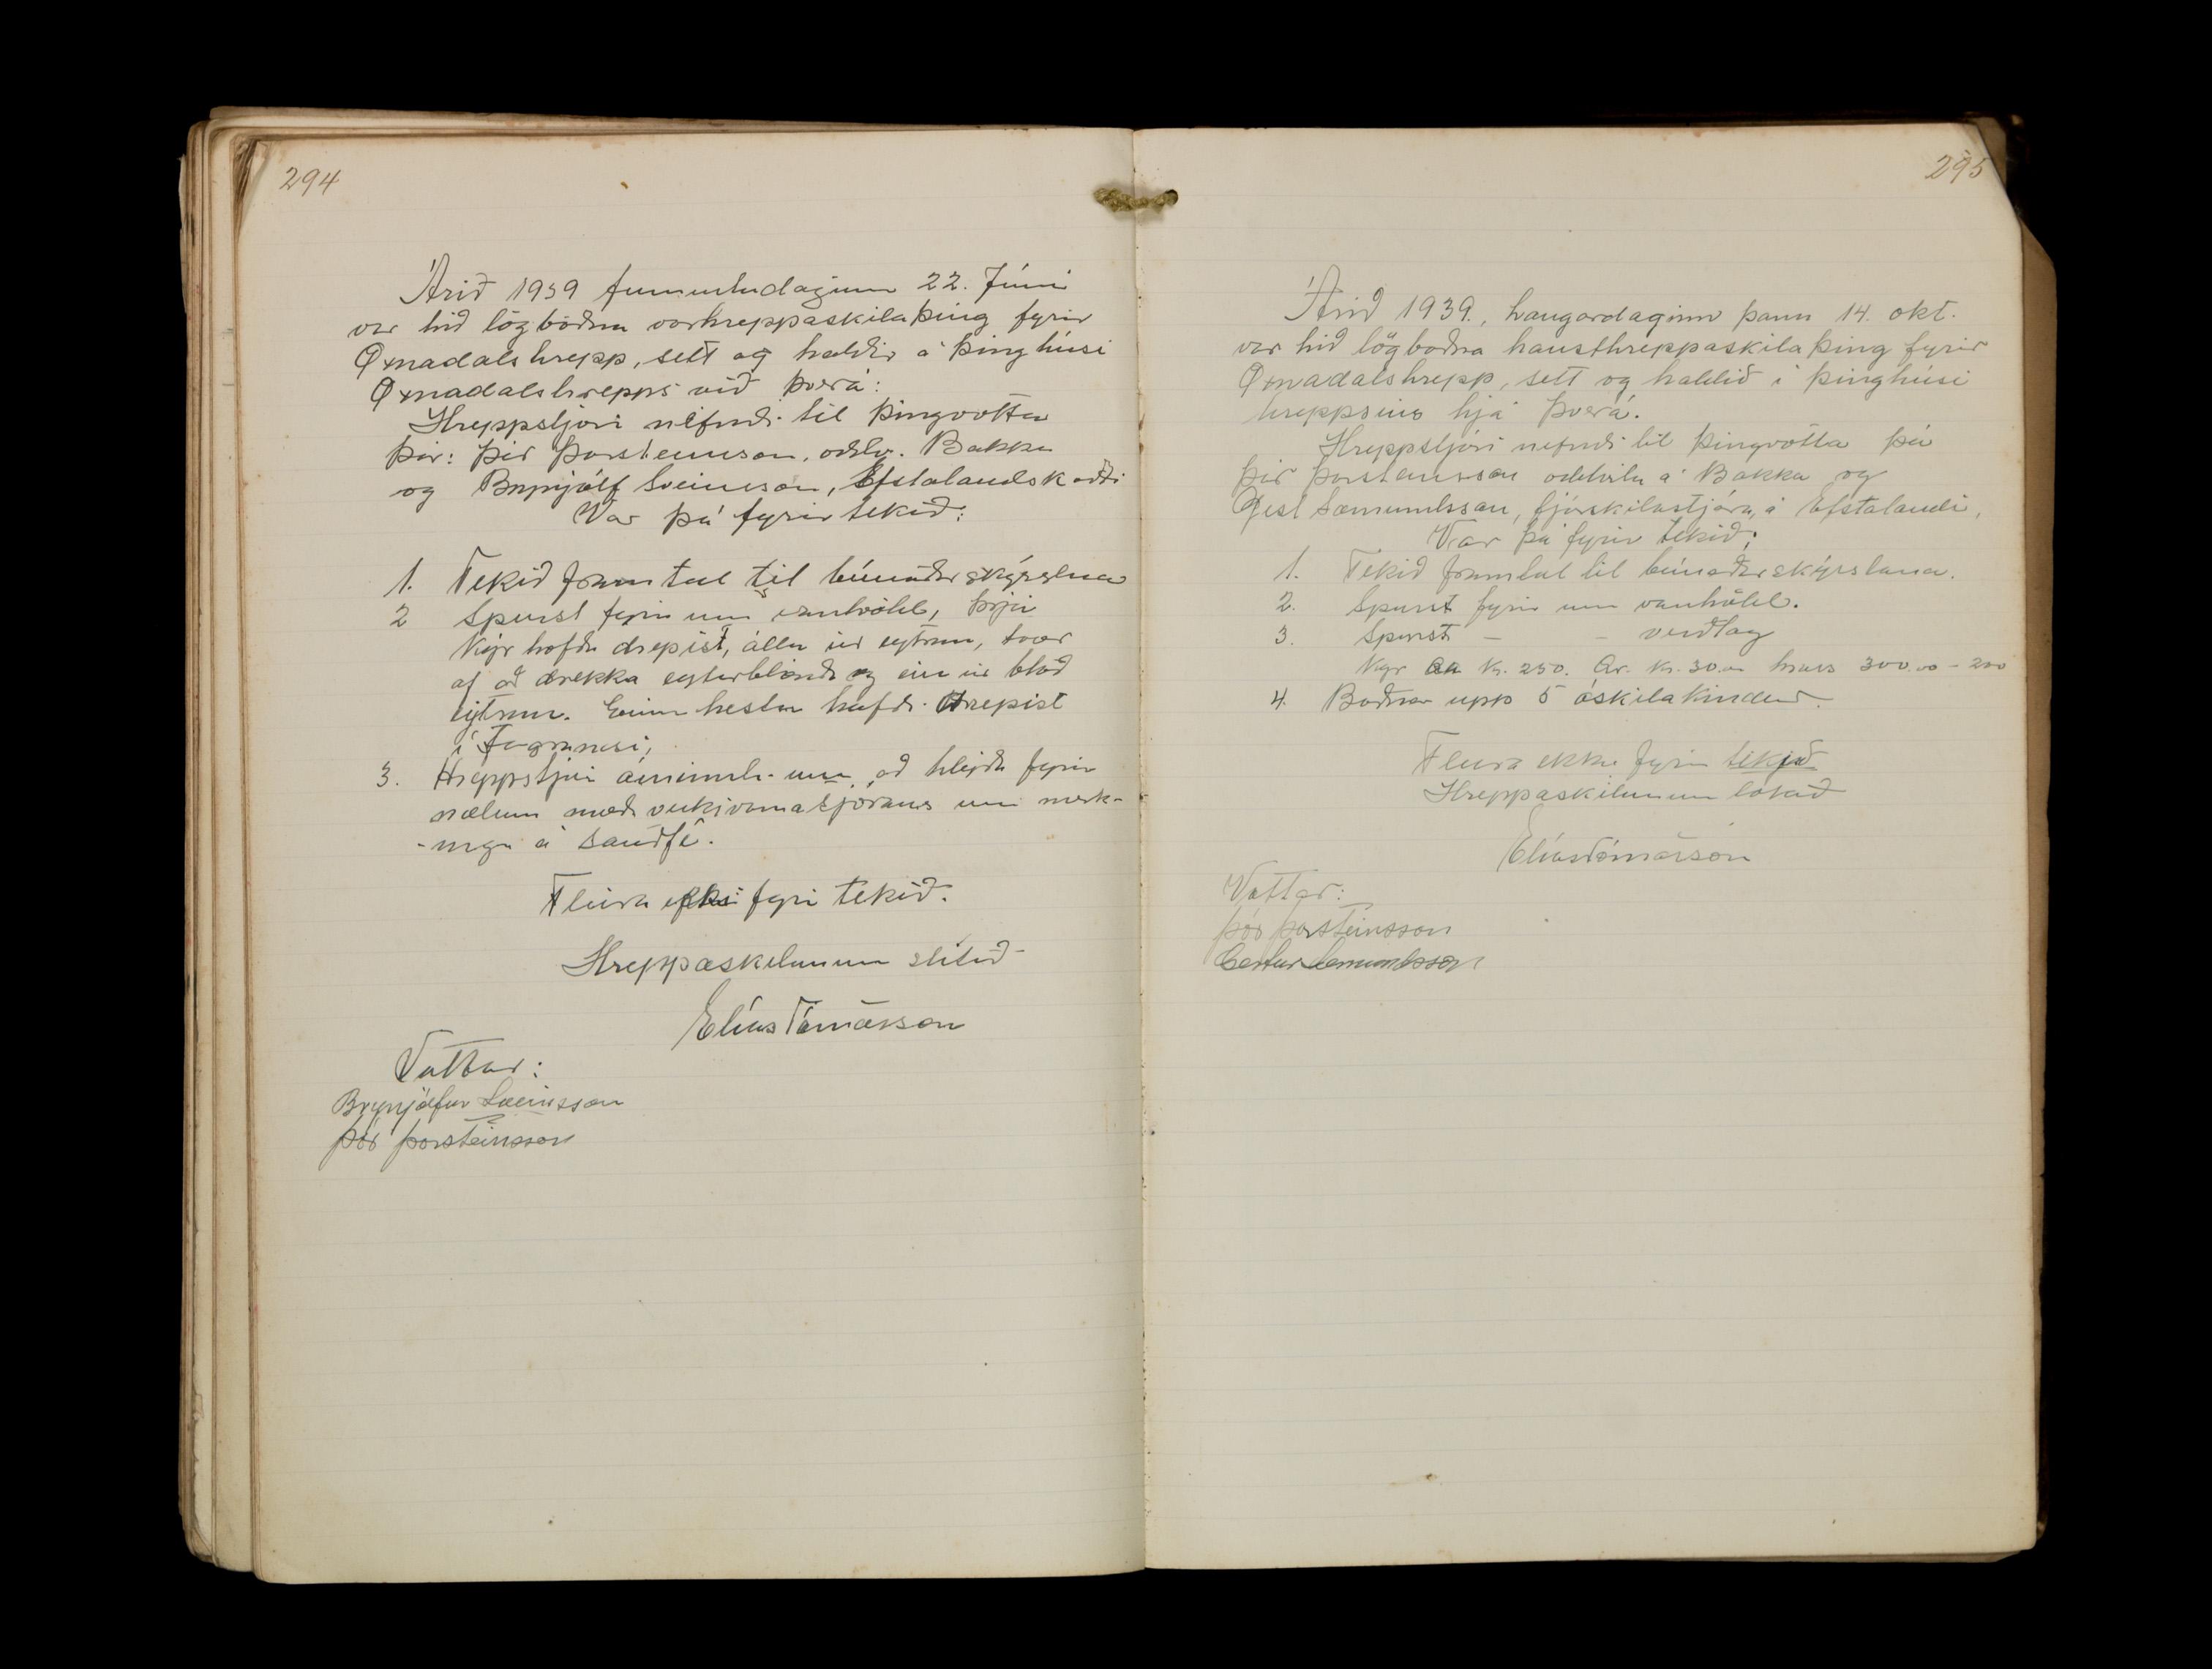 294
Árið 1939 fimmtudaginn 22. Júni
var hið lögboðna vorhreppaskilaþing fyrir
Öxnadalshrepp, sett og haldið á þinghúsi
Öxnadalshrepps við Þverá:
Hreppstjóri nefndi til þingvotta
þá: Þór Þorsteinsson, oddv. Bakka
og Brynjólf Sveinsson, Efstalandskoti
Var þá fyrir tekið:
1. Tekið framtal til búnaðarskýrslna
2 Spurst fyrir um vanhöld, þrjár
Kýr hafða drepist, allar úr eytrun, tvær
af að drekka eyturblöndu og ein úr blóð
eytrun. Einn hestur hafði drepist
í Fagranesi,
3. Hreppstjóri áminnti um að hlýða fyrir
mælum mæðiveikivarnastjórans um merk-
-inga á Sauðfé.
Fleira ekki fyri tekið.
Hreppaskilunum slitið
Elías Tómasson
Vottar:
Brynjólfur Sveinsson
Þór Þorsteinsson
295
Árið 1939., laugardaginn þann 14. okt.
var hið lögboðna hausthreppaskilaþing fyrir
Öxnadalshrepp, sett og haldið í þinghúsi
hreppsins hjá Þverá.
Hreppstjóri nefndi til þingvotta þá
Þór Þorsteinsson oddvita á Bakka og
Gest Sæmundsson, fjárskilastjóra, á Efstalandi,
Var þá fyrir tekið:
1. Tekið framtal til búnaðarskýrslana.
2. Spurst fyrir um vanhöld.
3. Spurst - - verðlag
Kýr kr. 250. Ær. kr. 30.00 hross 300.00 - 200
4. Boðnar upp 5 óskilakindur.
Fleira ekki fyrir tekið
Hreppaskilunum lokað
Elías Tómasson
Vottar:
Þór Þorsteinsson
Gestur Sæmundsson